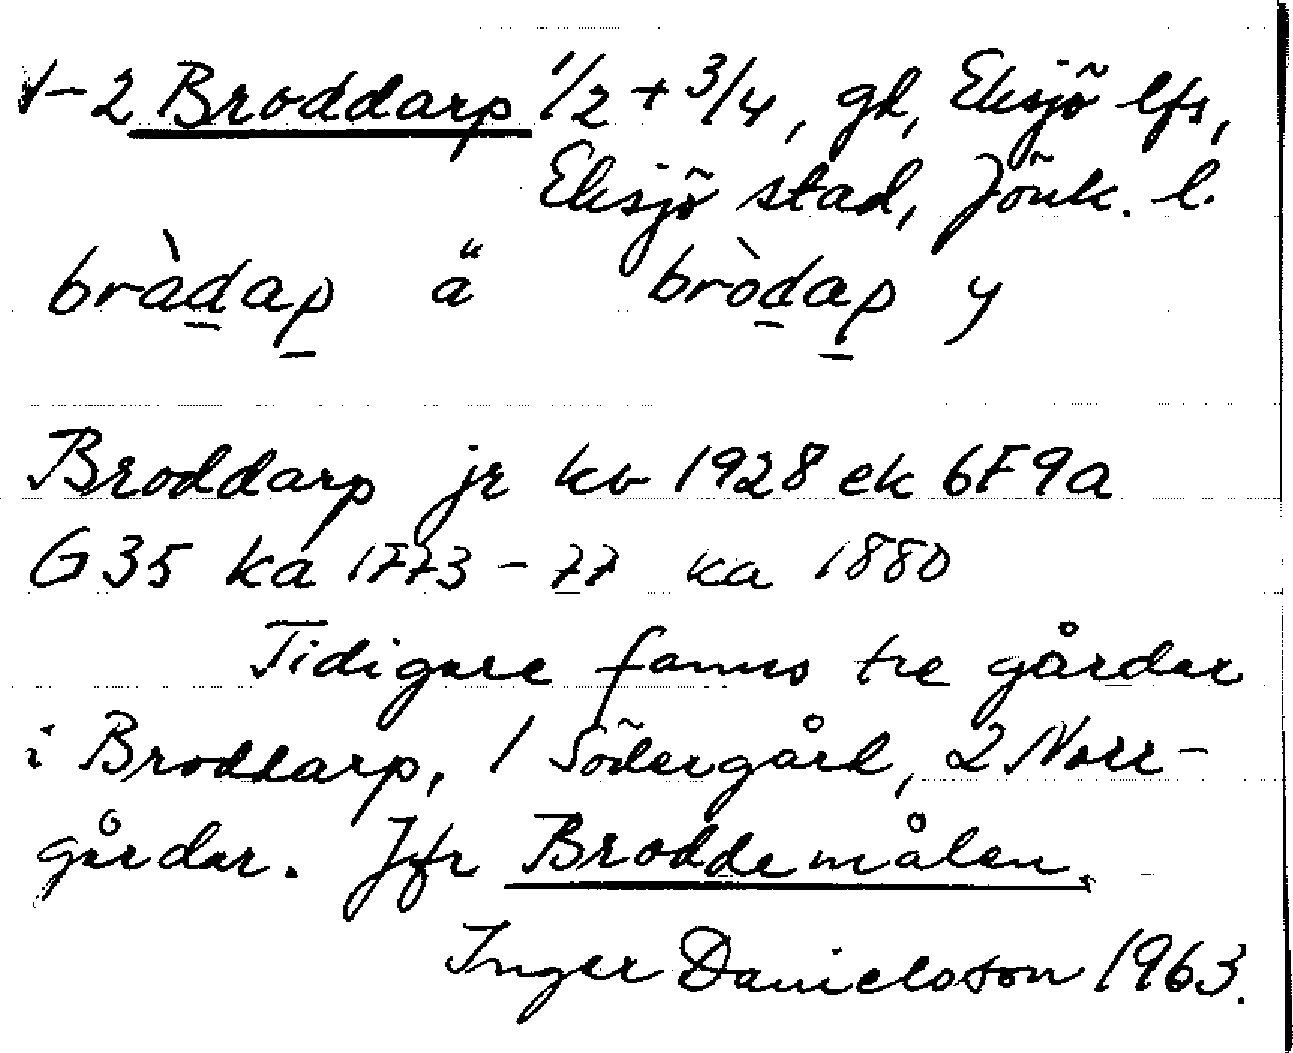 1-2 Broddarp 1/2 + 3/4, gd, Eksjö lfs,
Eksjö stad, Jönk. l.
bràdap ä bròdap y
Broddarp jr kb 1928 ek 6F9a
G35 ka 1773-77 ka 1880
Tidigare fanns tre gårdar
i Broddarp, 1 Södergård, 2 Norr-
gårdar. Jfr Broddemålen.
Inger Danielsson 1963.